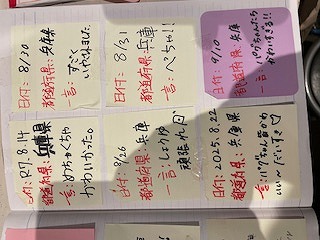 日付: 8/30
都道府県: 兵庫県
一言: すごく
いやされました。
日付: 8/31
都道府県: 兵庫
一言: ぺちゃ!!
日付: 9/10
都道府県: 兵庫
一言
パグちゃんたち
かわいすぎる!!
日付: R7.8.14
都道府県: 兵庫県
一言: めちゃくちゃ
かわいかった。
日付: 8/26
都道府県: 兵庫
一言: しょうゆ
頑張れ
日付: 2025.8.22
都道府県: 兵庫県
一言:
だいすき